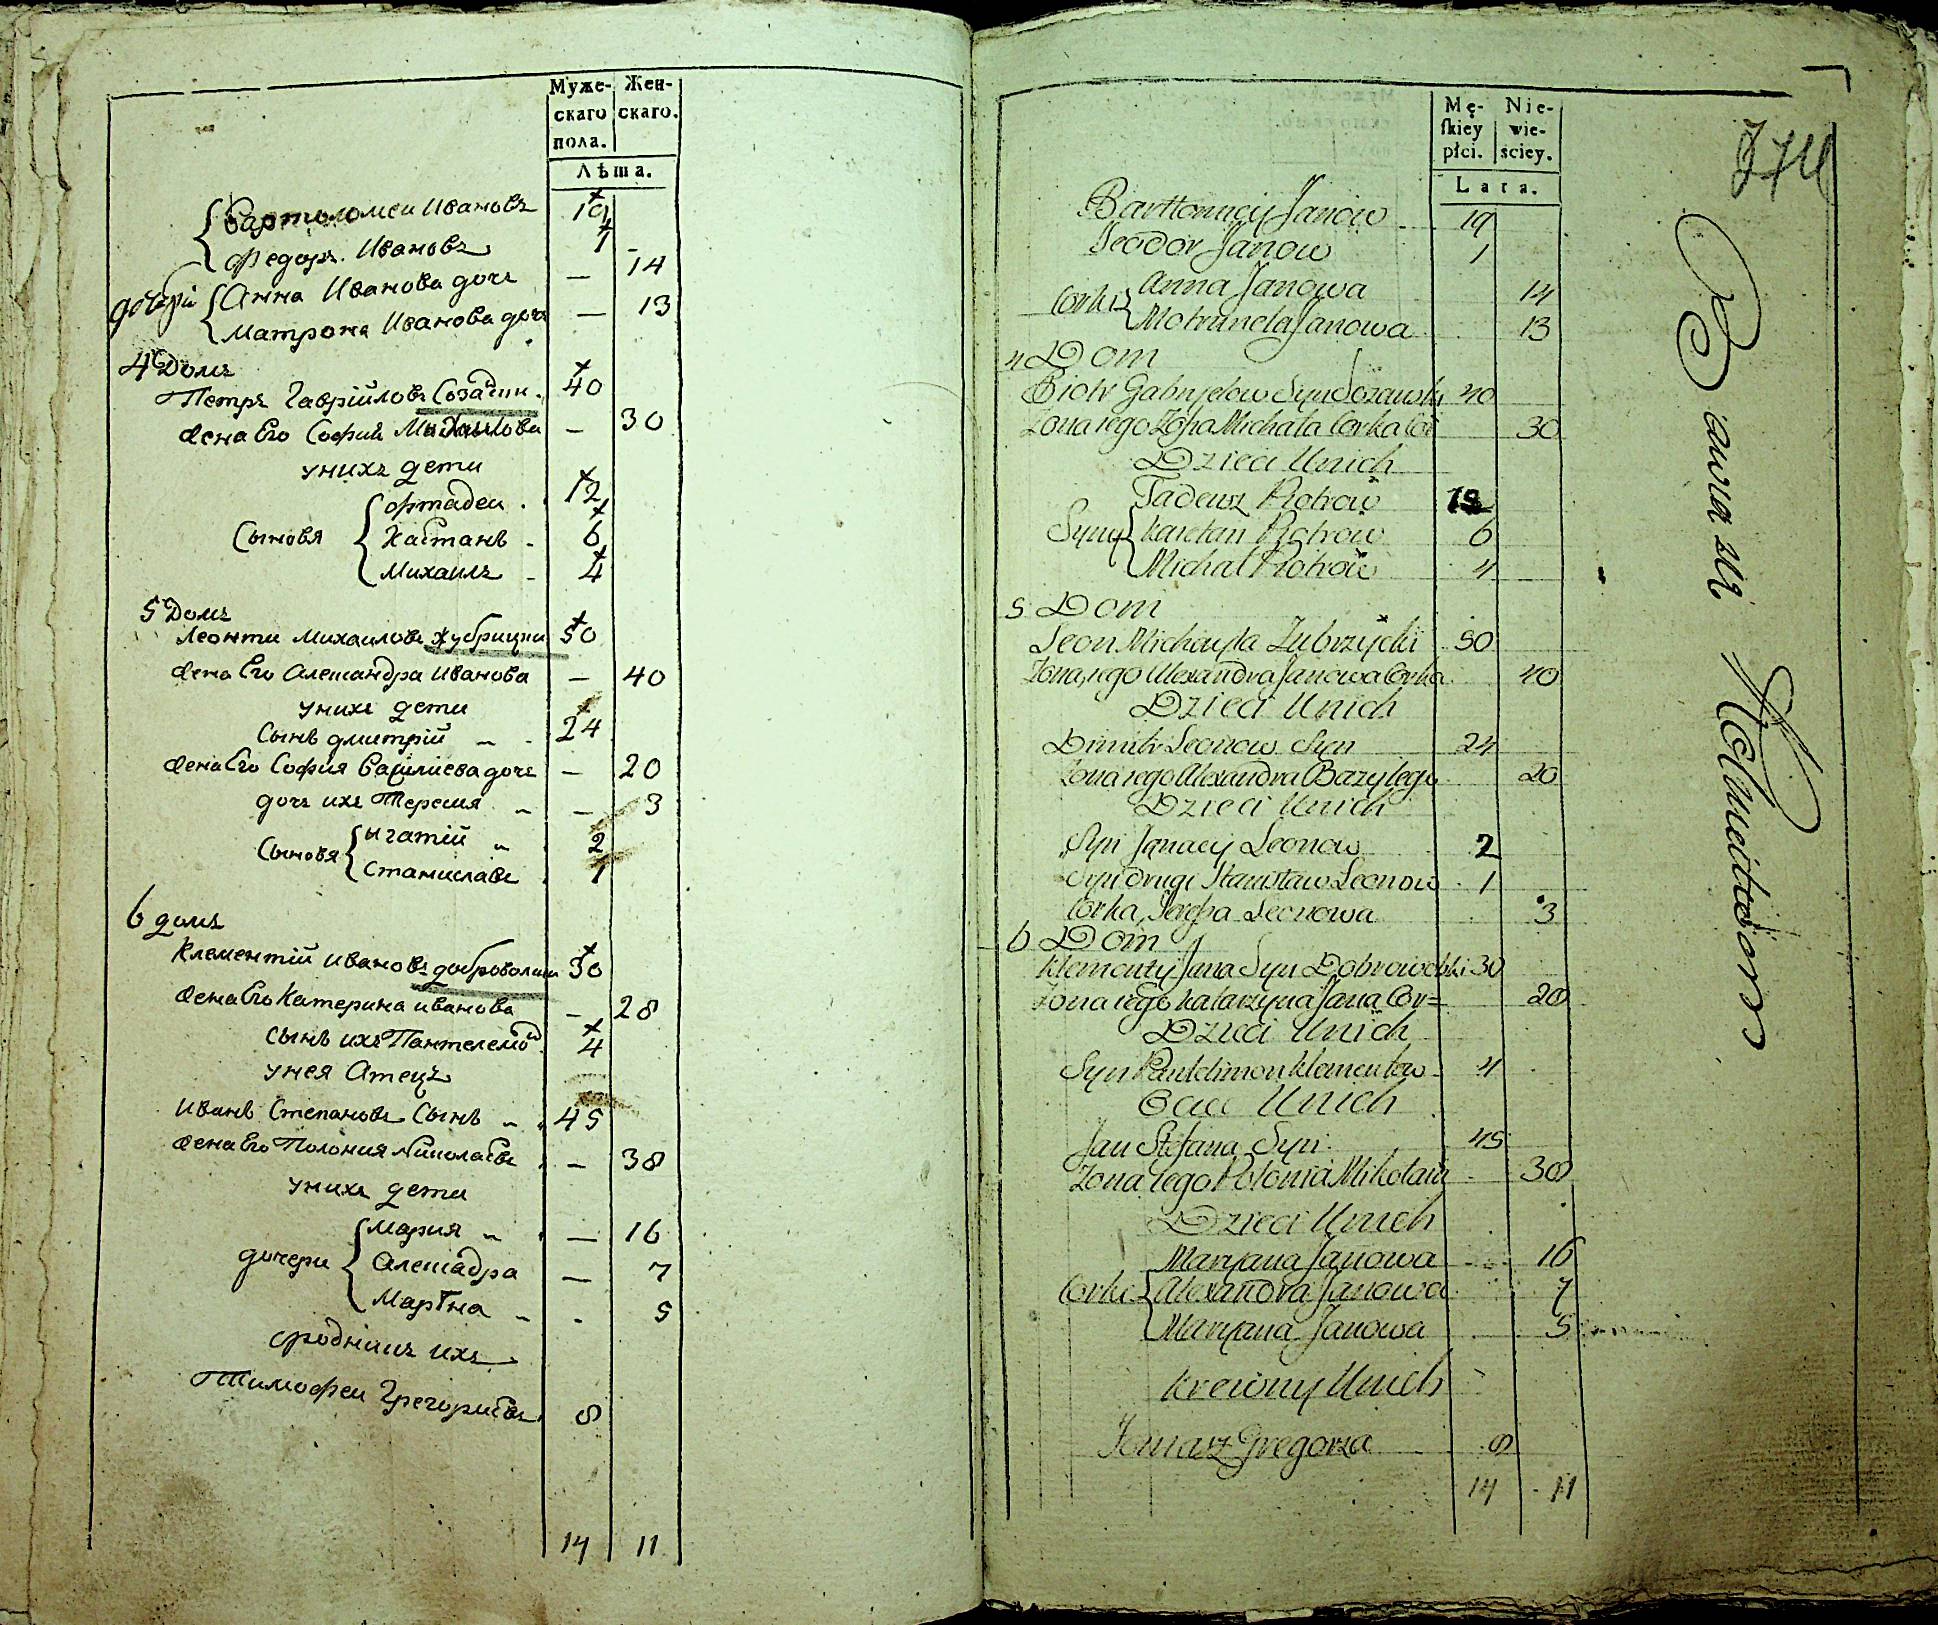 Муже-
скаго
пола.
Жен-
скаго.
Лѣта.
Бартоломеи Ивановъ 19
Федоръ Ивановъ 1
дочери Анна Иванова дочь — 14
Матрона Иванова доч — 13
4 Домъ
Петръ Гаврійловъ 40
жена Его София Михаилова — 30
унихъ дети
Сыновя
Фтадеи 12
Каетанъ 6
Михаилъ 4
5 Домъ
Леонти Михаиловъ Жубрицки 50
жена Его Александра Иванова — 40
унихъ дети
Сынъ дмитрій 24
жена Его София Василиева дочь — 20
дочь ихъ Тереша — 3
Сыновя
ыгнатій 2
Станиславъ 1
6 домъ
Клементій Ивановъ доброволски 30
жена Его Катерина иванова — 28
сынъ ихъ Пантелемон 4
унея Отецъ
Иванъ Степановъ Сынъ 45
жена Его Полония Николаевъ — 38
унихъ дети
дочери
Мария — 16
Алешадра — 7
Марена 5
сродникъ ихъ
Тимофеи Грегориевъ 8
14 11
Mę-
ſkiey
płci.
Nie-
wie-
sciey.
Lata.
Bartłomiey Janow 19
Teodor Janow 1
Corki Anna Janowa 14
Motrunela Janowa 13
4 Dom
Piotr Gabryelow Syn Sozanski 40
Zona iego Zofia Michała Corka 30
Dzieci Unich
Tadeusz Piotrow 12
Syny Kaietan Piotrow 6
Michał Piotrow 4
5 Dom
Leon Michayła Zubrzycki 50
Zona iego Alexandra Janowa Corka 40
Dzieci Unich
Dimitr Leonow Syn 24
Zona iego Alexandra Bazylego 20
Dzieci Unich
Syn Jgnacy Leonow 2
Syn drugi Stanisław Leonow 1
Corka Leonowa 3
6 Dom
Klementy Jana Syn Dobrowolski 30
Zona iego Katarzyna Jana Cor= 28
Dzieci Unich
Syn Pantelimon Klementow 4
Unich
Jan Stefana Syn 45
Zona iego Polonia Mikołaia 38
Dzieci Unich
Maryana Janowa 16
Corki Alexandra Janowa 7
Maryana Janowa 5
Krewny Unich
Tomasz Gregorza 8
14 11